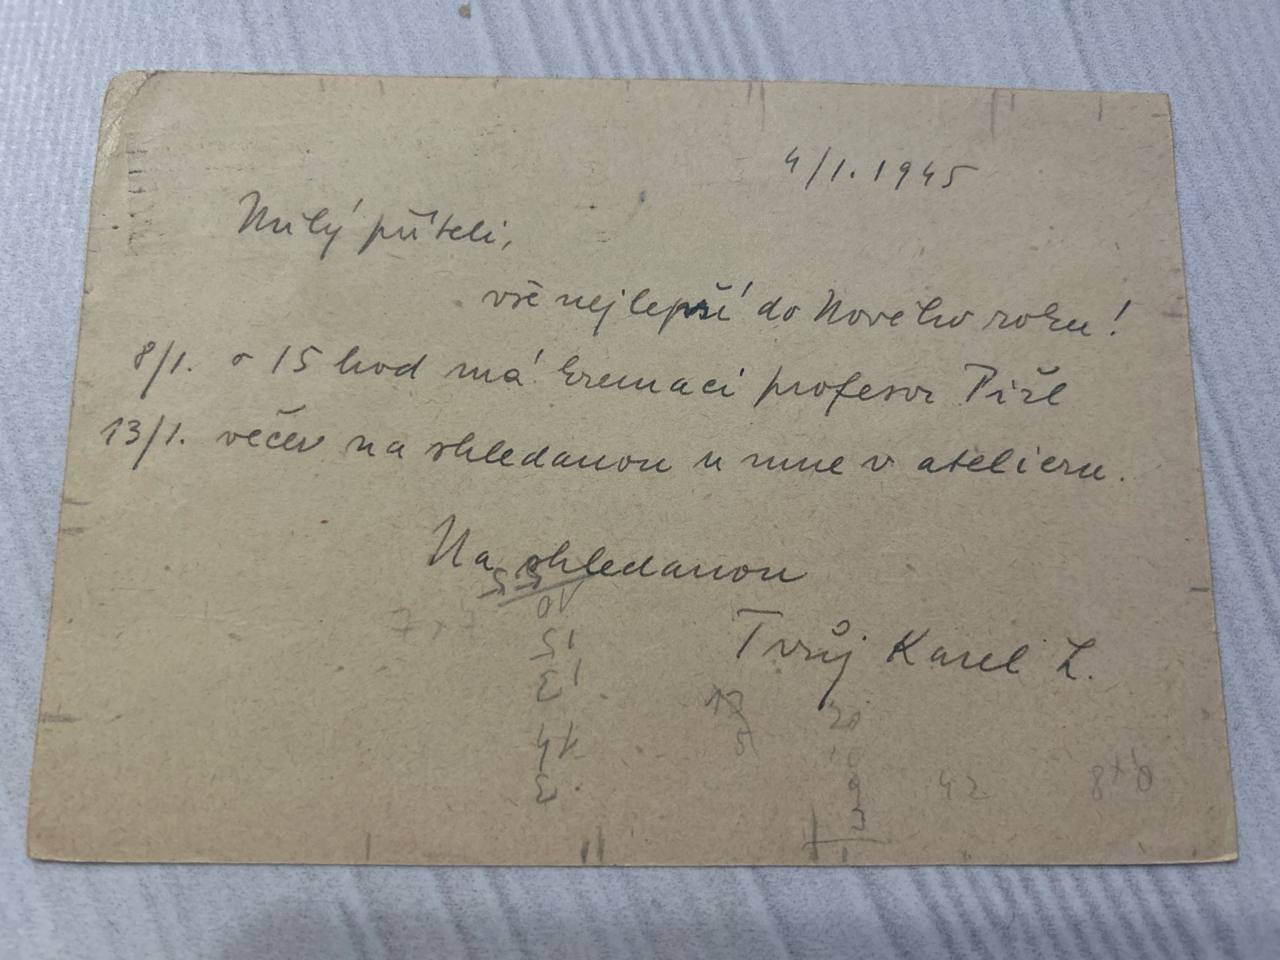 4/1. 1945
Milý příteli,
vše nejlepší do Nového roku!
8/1. o 15 hod má kremaci profesor
13/1. večer na shledanou u mne v atelieru.
Na shledanou
Tvůj Karel L.
7x7
55
10
15
13
14
3
5
9
3
42